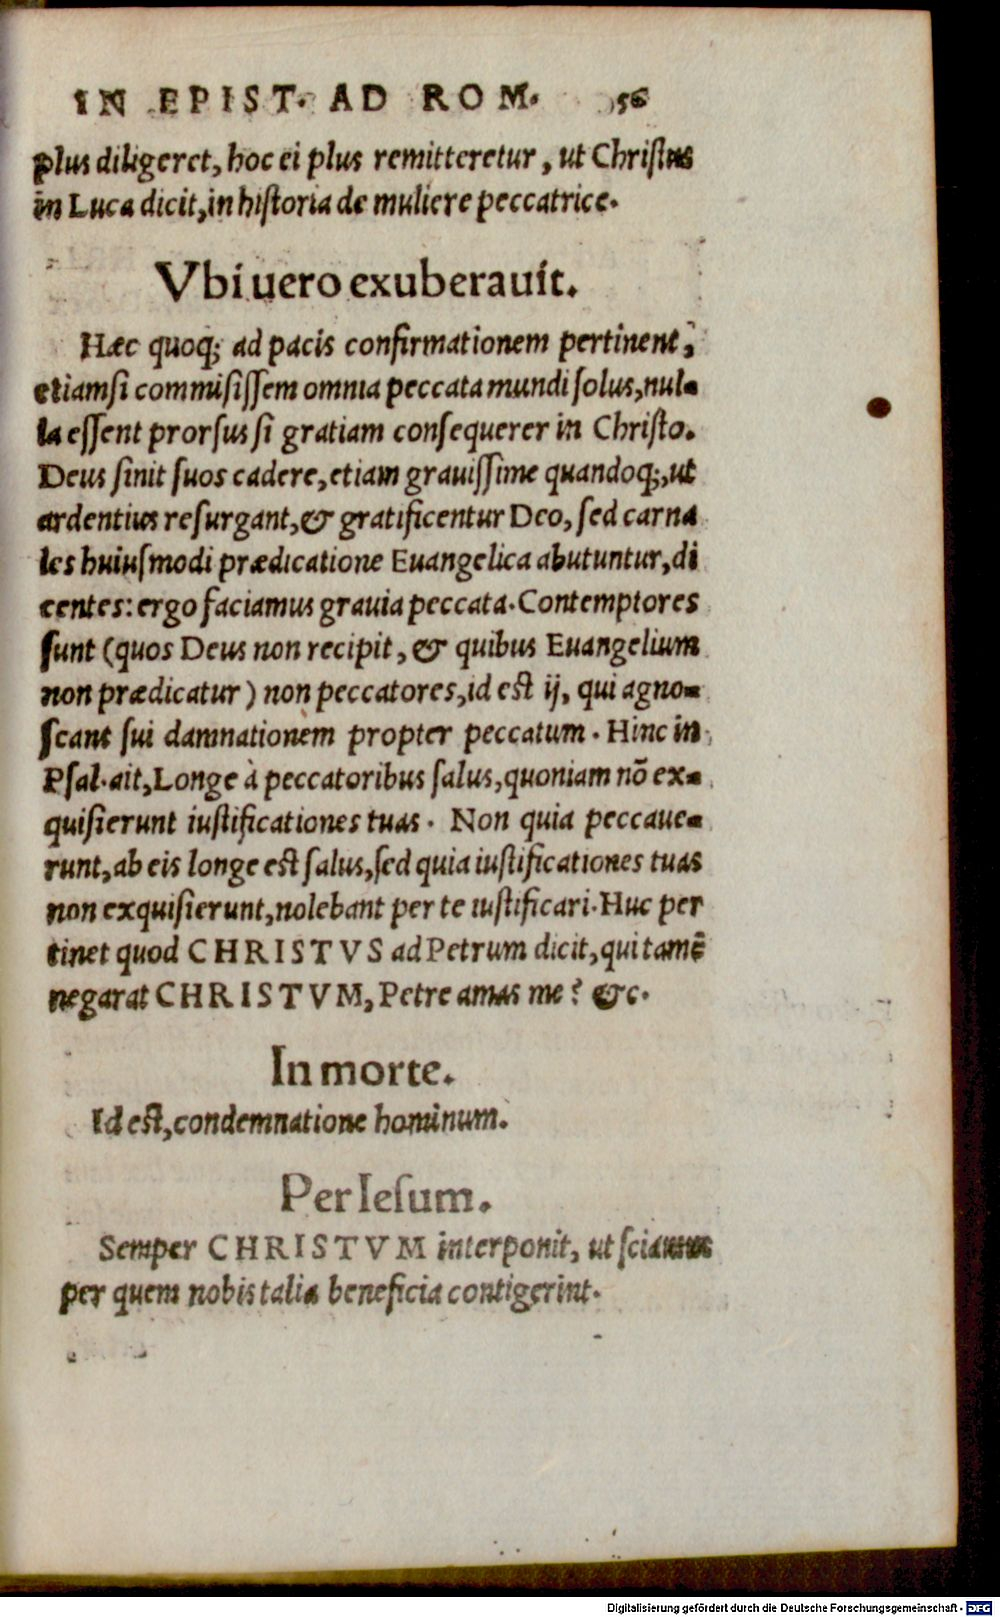 IN EPIST. AD ROM. 56
plus diligeret, hoc ei plus remitteretur, ut Christus
in Luca dicit, in historia de muliere peccatrice.
Vbi uero exuberauit.
Hæc quoq; ad pacis confirmationem pertinent,
etiamsi commisissem omnia peccata mundi solus, nul-
la essent prorsus si gratiam consequerer in Christo.
Deus sinit suos cadere, etiam grauissime quandoq;, ut
ardentius resurgant, & gratificentur Deo, sed carna
les huiusmodi prædicatione Euangelica abutuntur, di
centes: ergo faciamus grauia peccata. Contemptores
sunt (quos Deus non recipit, & quibus Euangelium
non prædicatur) non peccatores, id est ij, qui agno-
scant sui damnationem propter peccatum. Hinc in
Psal. ait, Longe à peccatoribus salus, quoniam nō ex-
quisierunt iustificationes tuas. Non quia peccaue-
runt, ab eis longe est salus, sed quia iustificationes tuas
non exquisierunt, nolebant per te iustificari. Huc per
tinet quod CHRISTVS ad Petrum dicit, qui tamē
negarat CHRISTVM, Petre amas me? &c.
In morte.
Id est, condemnatione hominum.
Per Iesum.
Semper CHRISTVM interponit, ut sciamus
per quem nobis talia beneficia contigerint.
Digitalisierung gefördert durch die Deutsche Forschungsgemeinschaft - DFG